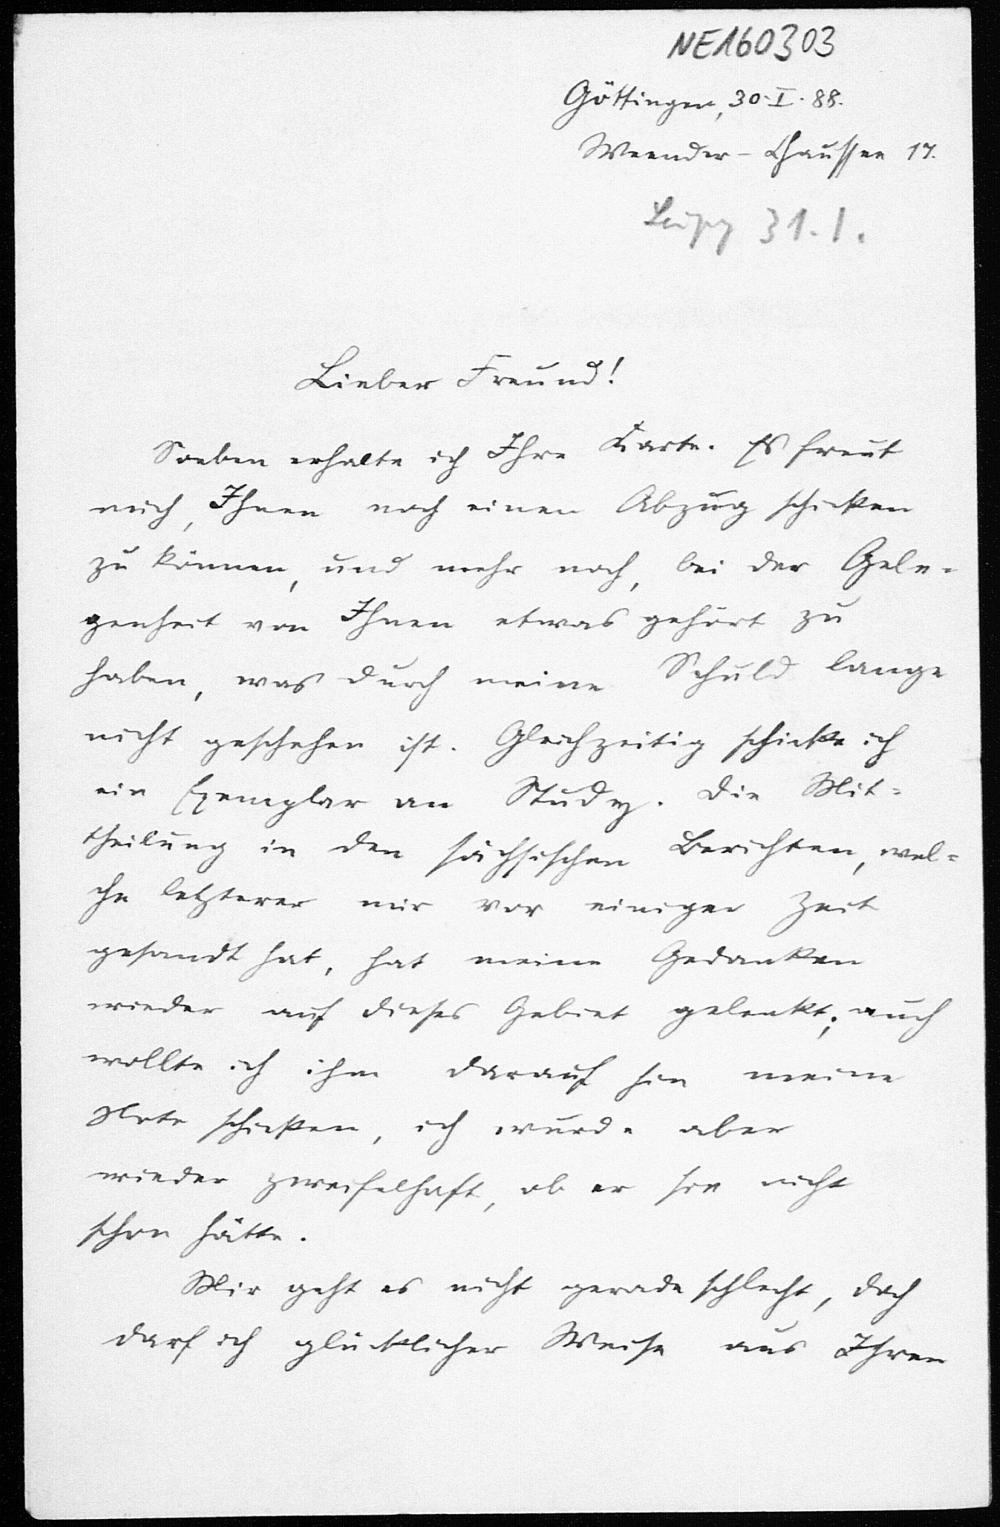 NE160303
Göttingen, 30.I.88.
Weender-Chaussee 17.
Leipz 31.1.
Lieber Freund!
Soeben erhalte ich Ihre Karte. Es freut
mich, Ihnen noch einen Abzug schicken
zu können, und mehr noch, bei der Gele-
genheit von Ihnen etwas gehört zu
haben, was durch meine Schuld lange
nicht geschehen ist. Gleichzeitig schicke ich
ein Exemplar an Study. Die Mit-
theilung in den sächsischen Berichten, wel-
che letzterer mir vor einiger Zeit
gesandt hat, hat meine Gedanken
wieder auf dieses Gebiet gelenkt; auch
wollte ich ihm darauf hin meine
Note schicken, ich wurde aber
wieder zweifelhaft, ob er sie nicht
schon hätte.
Mir geht es nicht gerade schlecht, doch
darf ich glücklicher Weise aus Ihren